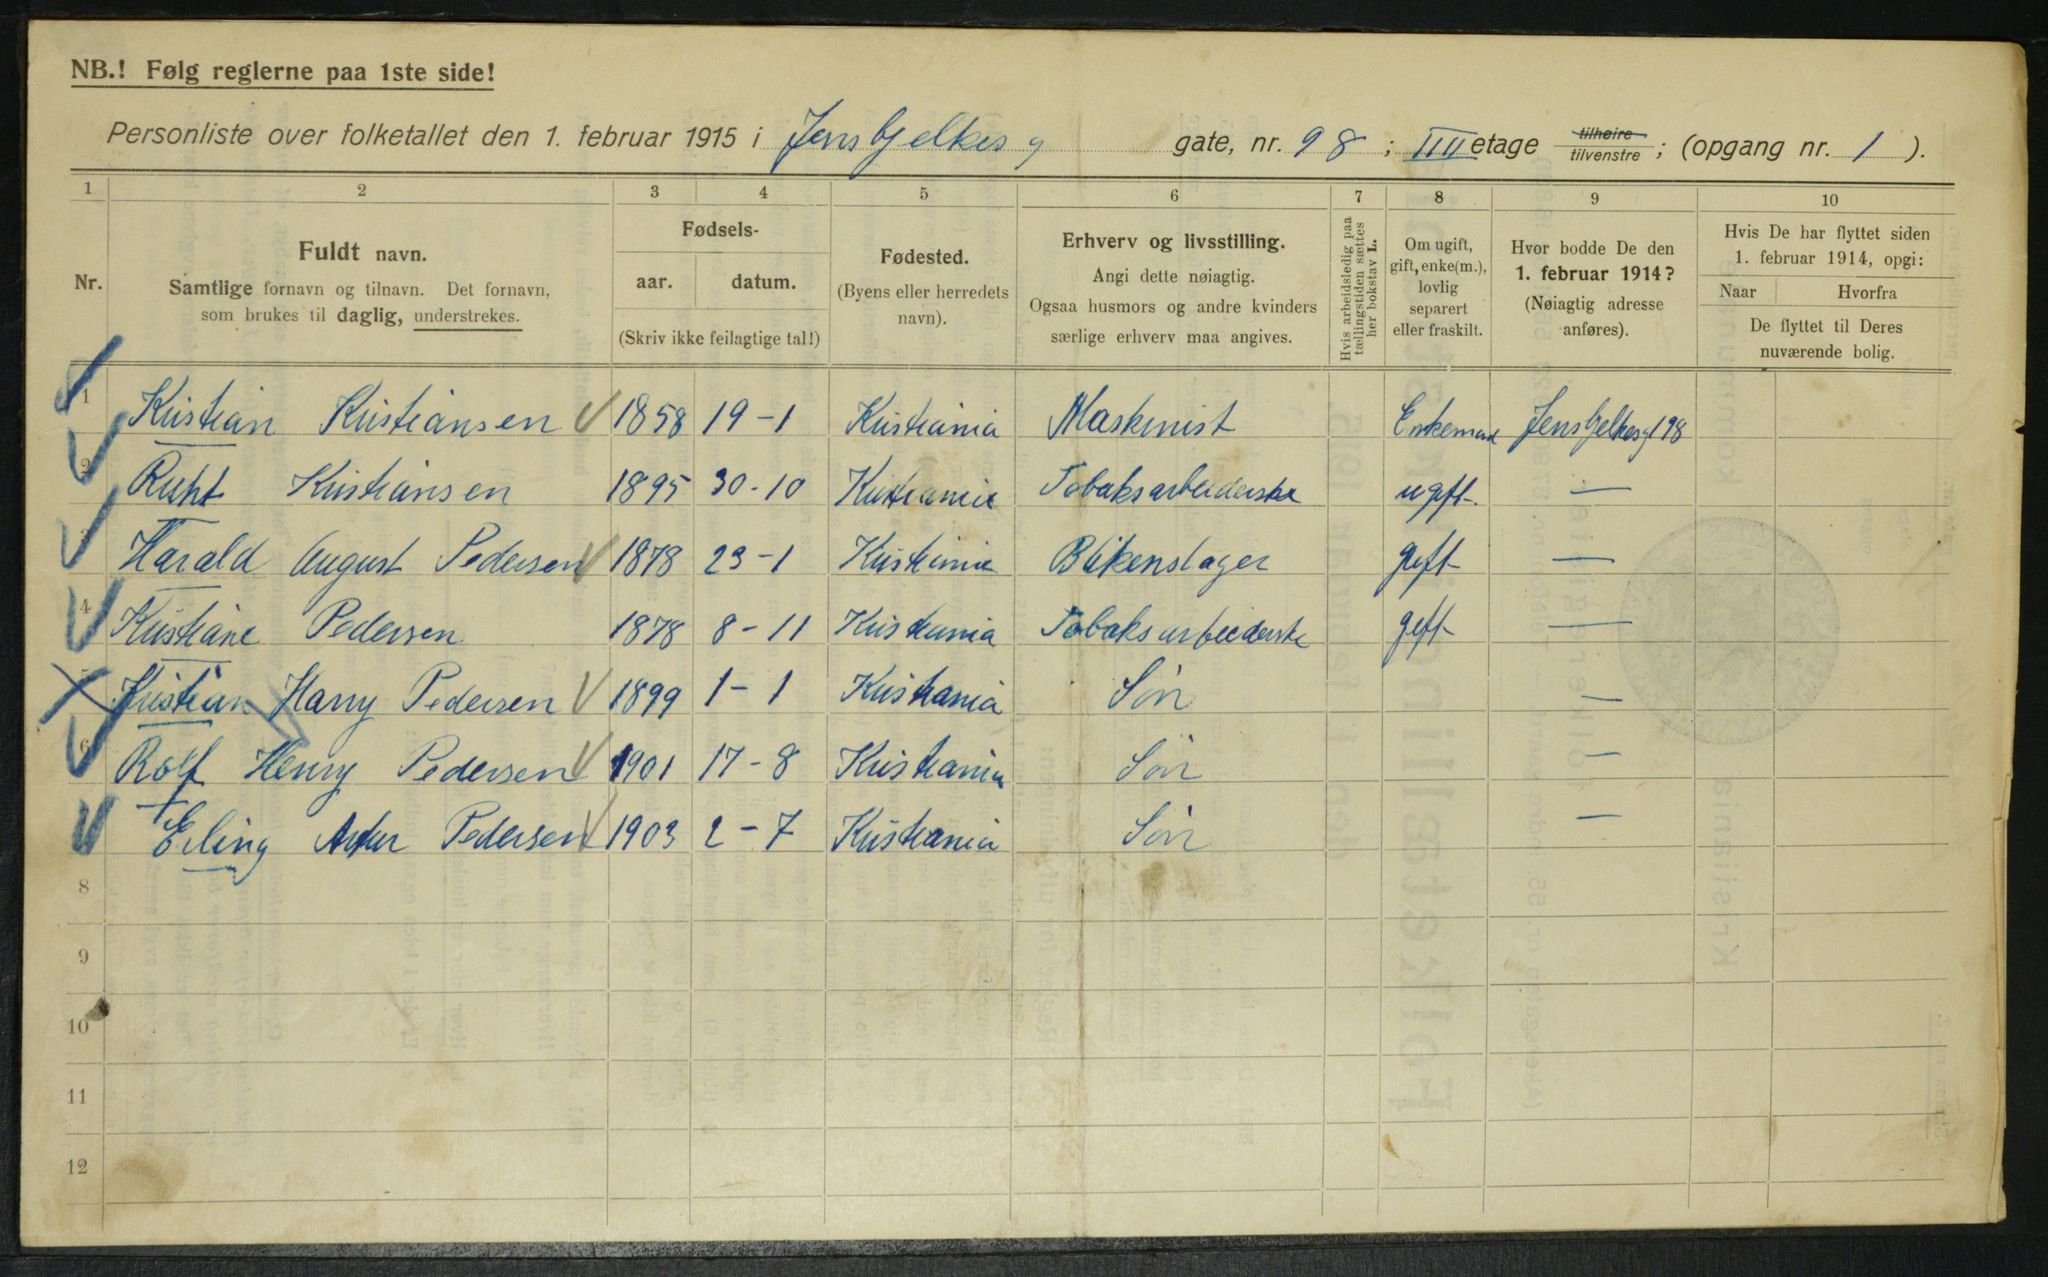 NB.! Følg reglerne paa 1ste side!
Personliste over folketallet den 1. februar 1915 i Jens Bjelkes g gate, nr. 98; IIII etage tilhøire tilvenstre; (opgang nr. 1).
1 2 3 4 5 6 7 8 9 10
Nr.
Fuldt navn.
Samtlige fornavn og tilnavn. Det fornavn,
som brukes til daglig, understrekes.
Fødsels-
aar. datum.
(Skriv ikke feilagtige tal!)
Fødested.
(Byens eller herredets
navn).
Erhverv og livsstilling.
Angi dette nøiagtig.
Ogsaa husmors og andre kvinders
særlige erhverv maa angives.
Hvis arbeidsledig paa
tællingstiden sættes
her bokstav L.
Om ugift,
gift, enke(m.),
lovlig
separert
eller fraskilt.
Hvor bodde De den
1. februar 1914?
(Nøiagtig adresse
anføres).
Hvis De har flyttet siden
1. februar 1914, opgi:
Naar Hvorfra
De flyttet til Deres
nuværende bolig.
1 Kristian Kristiansen 1858 19-1 Kristiania Maskinist Enkemand Jens Bjelkesgt 98
2 Ruht Kristiansen 1895 30-10 Kristiania Tobaksarbeiderske ugift. —
3 Harald August Pedersen 1878 23-1 Kristiania Blikenslager gift —
4 Kristiane Pedersen 1878 8-11 Kristiania Tobaksarbeiderske gift —
5 Kristian Harry Pedersen 1899 1-1 Kristiania Søn —
6 Rolf Henry Pedersen 1901 17-8 Kristiania Søn —
Erling Artur Pedersen 1903 2-7 Kristiania Søn —
8
9
10
11
12